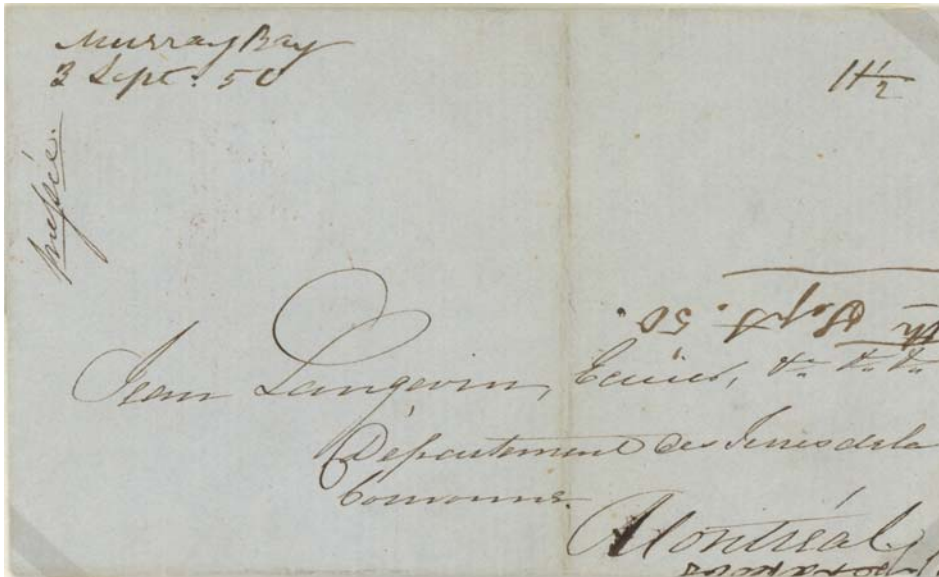 Murray Bay
3 Sept: 50
11½
prepée.
th Sept. 50.
Jean Langevin, Ecuier, &c. &c. &c.
Département des Terres de la
Couronne.
Montréal